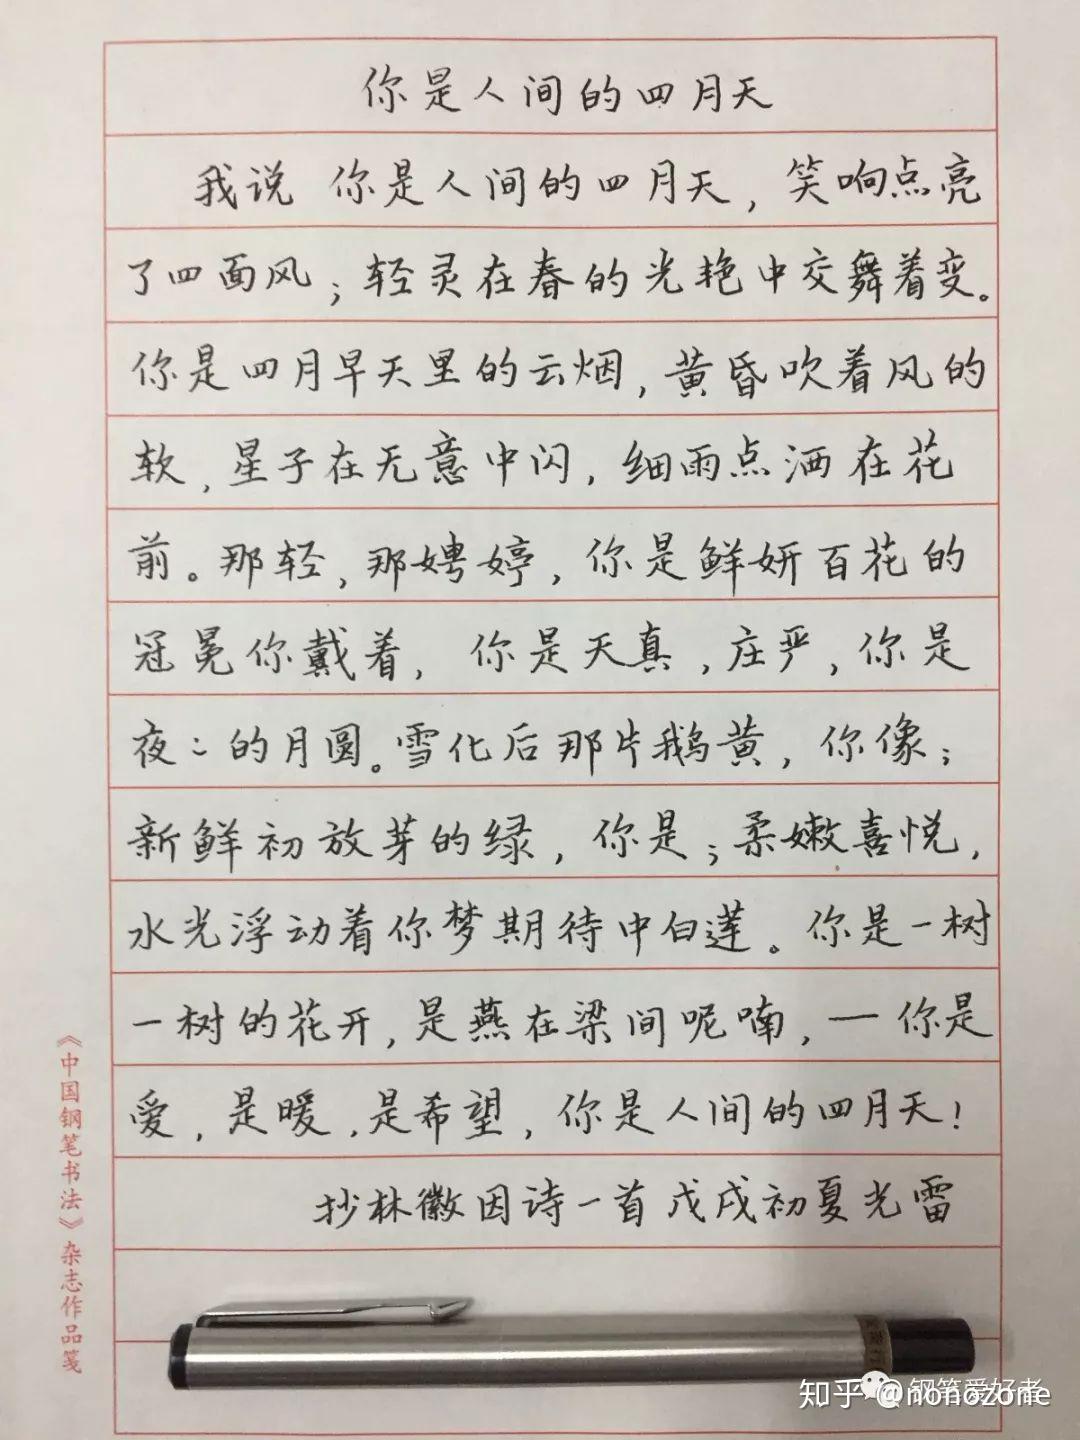 你是人间的四月天
我说 你是人间的四月天，笑响点亮
了四面风；轻灵在春的光艳中交舞着变。
你是四月早天里的云烟，黄昏吹着风的
软，星子在无意中闪，细雨点洒在花
前。那轻，那娉婷，你是鲜妍百花的
冠冕你戴着，你是天真，庄严，你是
夜：的月圆。雪化后那片鹅黄，你像；
新鲜初放芽的绿，你是；柔嫩喜悦，
水光浮动着你梦期待中白莲。你是一树
一树的花开，是燕在梁间呢喃，— 你是
爱，是暖，是希望，你是人间的四月天！
抄林徽因诗一首 戊戌初夏光雷
《中国钢笔书法》杂志作品笺
知乎 @nonozone
钢笔爱好者